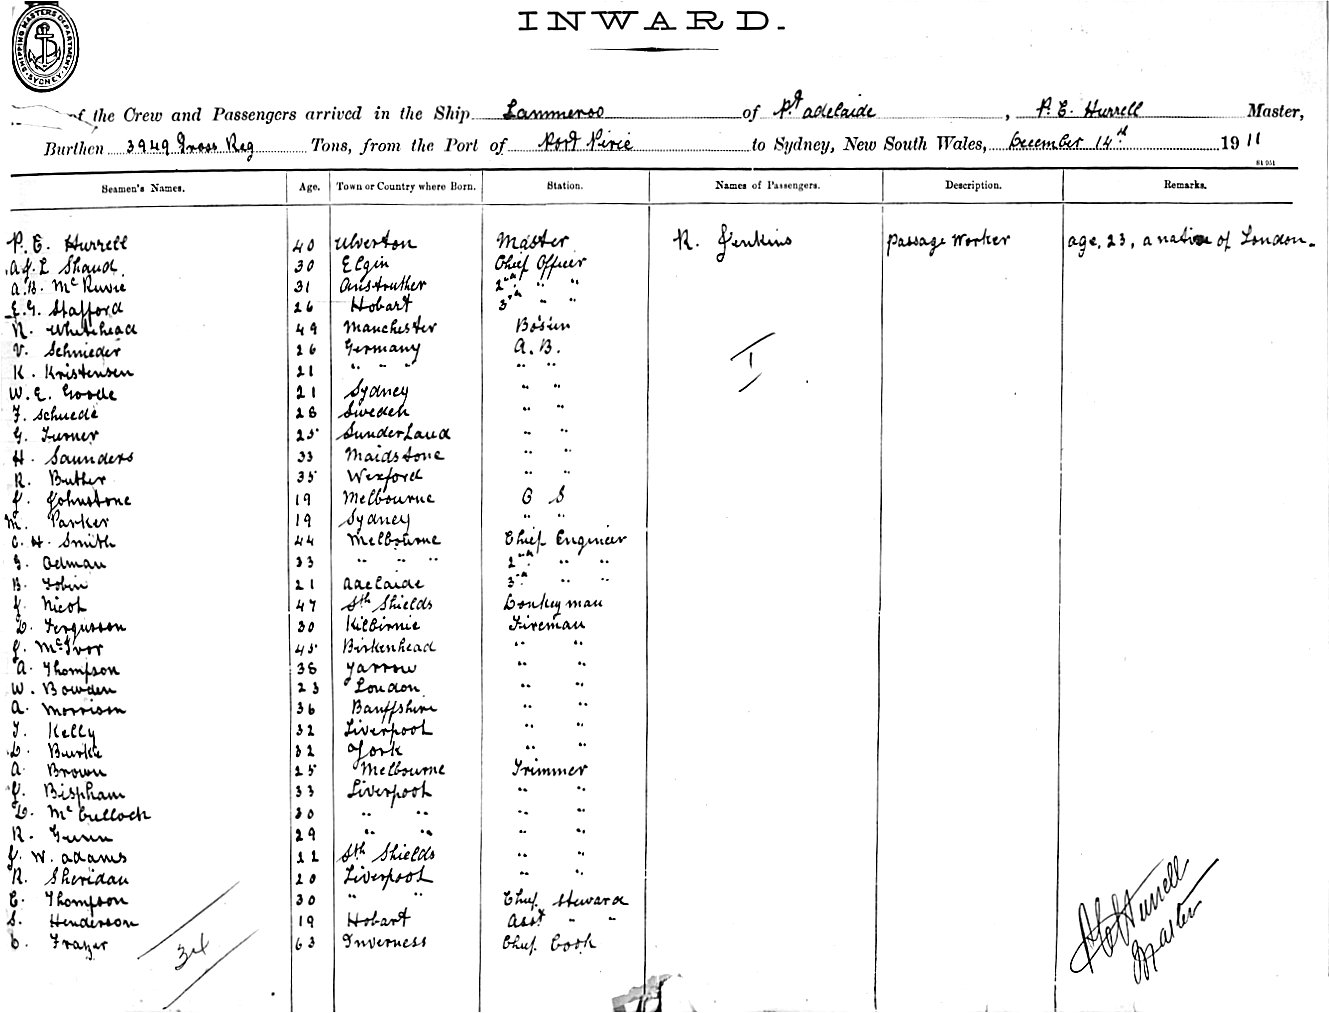 INWARD.
SHIPPING MASTERS DEPARTMENT SYDNEY
of the Crew and Passengers arrived in the Ship Lammeroo of Pt Adelaide, P. E. Hurrell Master,
Burthen 3949 Gross Reg Tons, from the Port of Port Pirie to Sydney, New South Wales, December 14th 1911
Seamen's Names. Age. Town or Country where Born. Station. Names of Passengers. Description. Remarks.
P. E. Hurrell 40 Ulverton Master R. Jenkins Passage Worker age, 23, a native of London.
A. J. L Shand 30 Elgin Chief Officer
A. B. McRuvie 31 Anstruther 2nd " "
E. G. Stafford 26 Hobart 3rd " "
R. Whitehead 49 Manchester Bo'sun
V. Schnieder 26 Germany A. B.
K. Kristensen 21 " " " " "
W. E. Goode 21 Sydney " "
F. Schuede 28 Sweden " "
G. Turner 25 Sunderland " "
H. Saunders 33 Maidstone " "
R. Butler 35 Wexford " "
J. Johnstone 19 Melbourne O S
M. Parker 19 Sydney " "
C. H. Smith 44 Melbourne Chief Engineer
G. Oelman 33 " " " 2nd " "
B. Tobin 21 Adelaide 3rd " "
J. Nicol 47 Sth Shields Donkeyman
D. Fergusson 30 Kilbirnie Fireman
J. McIvor 45 Birkenhead " "
A. Thompson 38 Yarrow " "
W. Bowden 23 London " "
A. Morrison 36 Banffshire " "
T. Kelly 32 Liverpool " "
D. Burke 32 York " "
A Brown 25 Melbourne Trimmer
J. Bispham 33 Liverpool " "
D. McCulloch 30 " " " "
R. Gunn 29 " " " "
J. W. Adams 22 Sth Shields " "
R. Sheridan 20 Liverpool " "
E. Thompson 30 " " Chief Steward
S. Henderson 19 Hobart Asst " "
C. Frazer 63 Inverness Chief Cook
34
1
P E Hurrell
Master